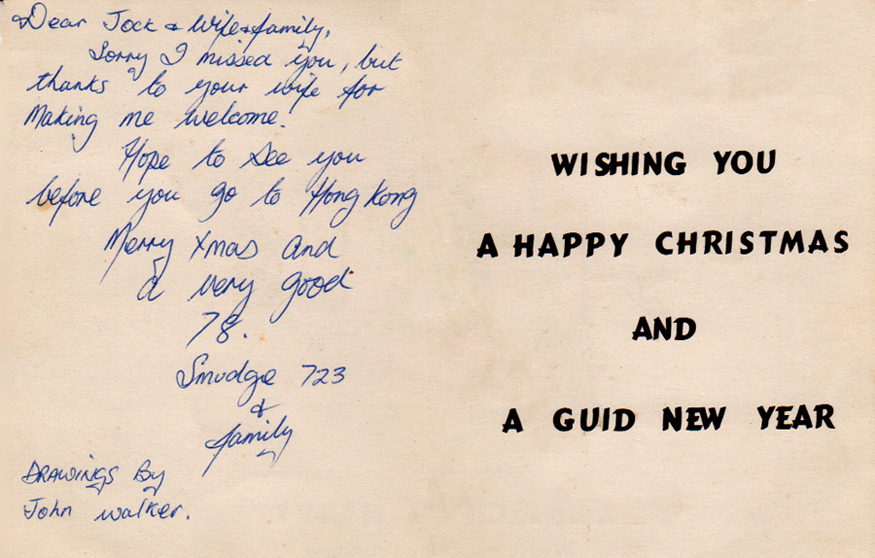 Dear Jock & wife & family,
Sorry I missed you, but
thanks to your wife for
Making me welcome.
Hope to see you
before you go to Hong Kong
Merry Xmas and
a very good
78.
Smudge 723
&
family
DRAWINGS By
John walker.
WISHING YOU
A HAPPY CHRISTMAS
AND
A GUID NEW YEAR